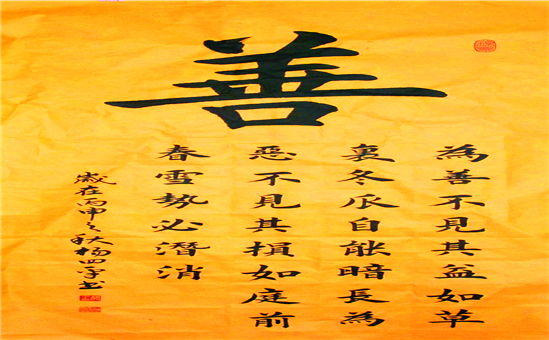 善
為善不見其益如草
裏冬瓜自能暗長為
惡不見其損如庭前
春雪勢必潛消
歲在丙申之秋楊四書